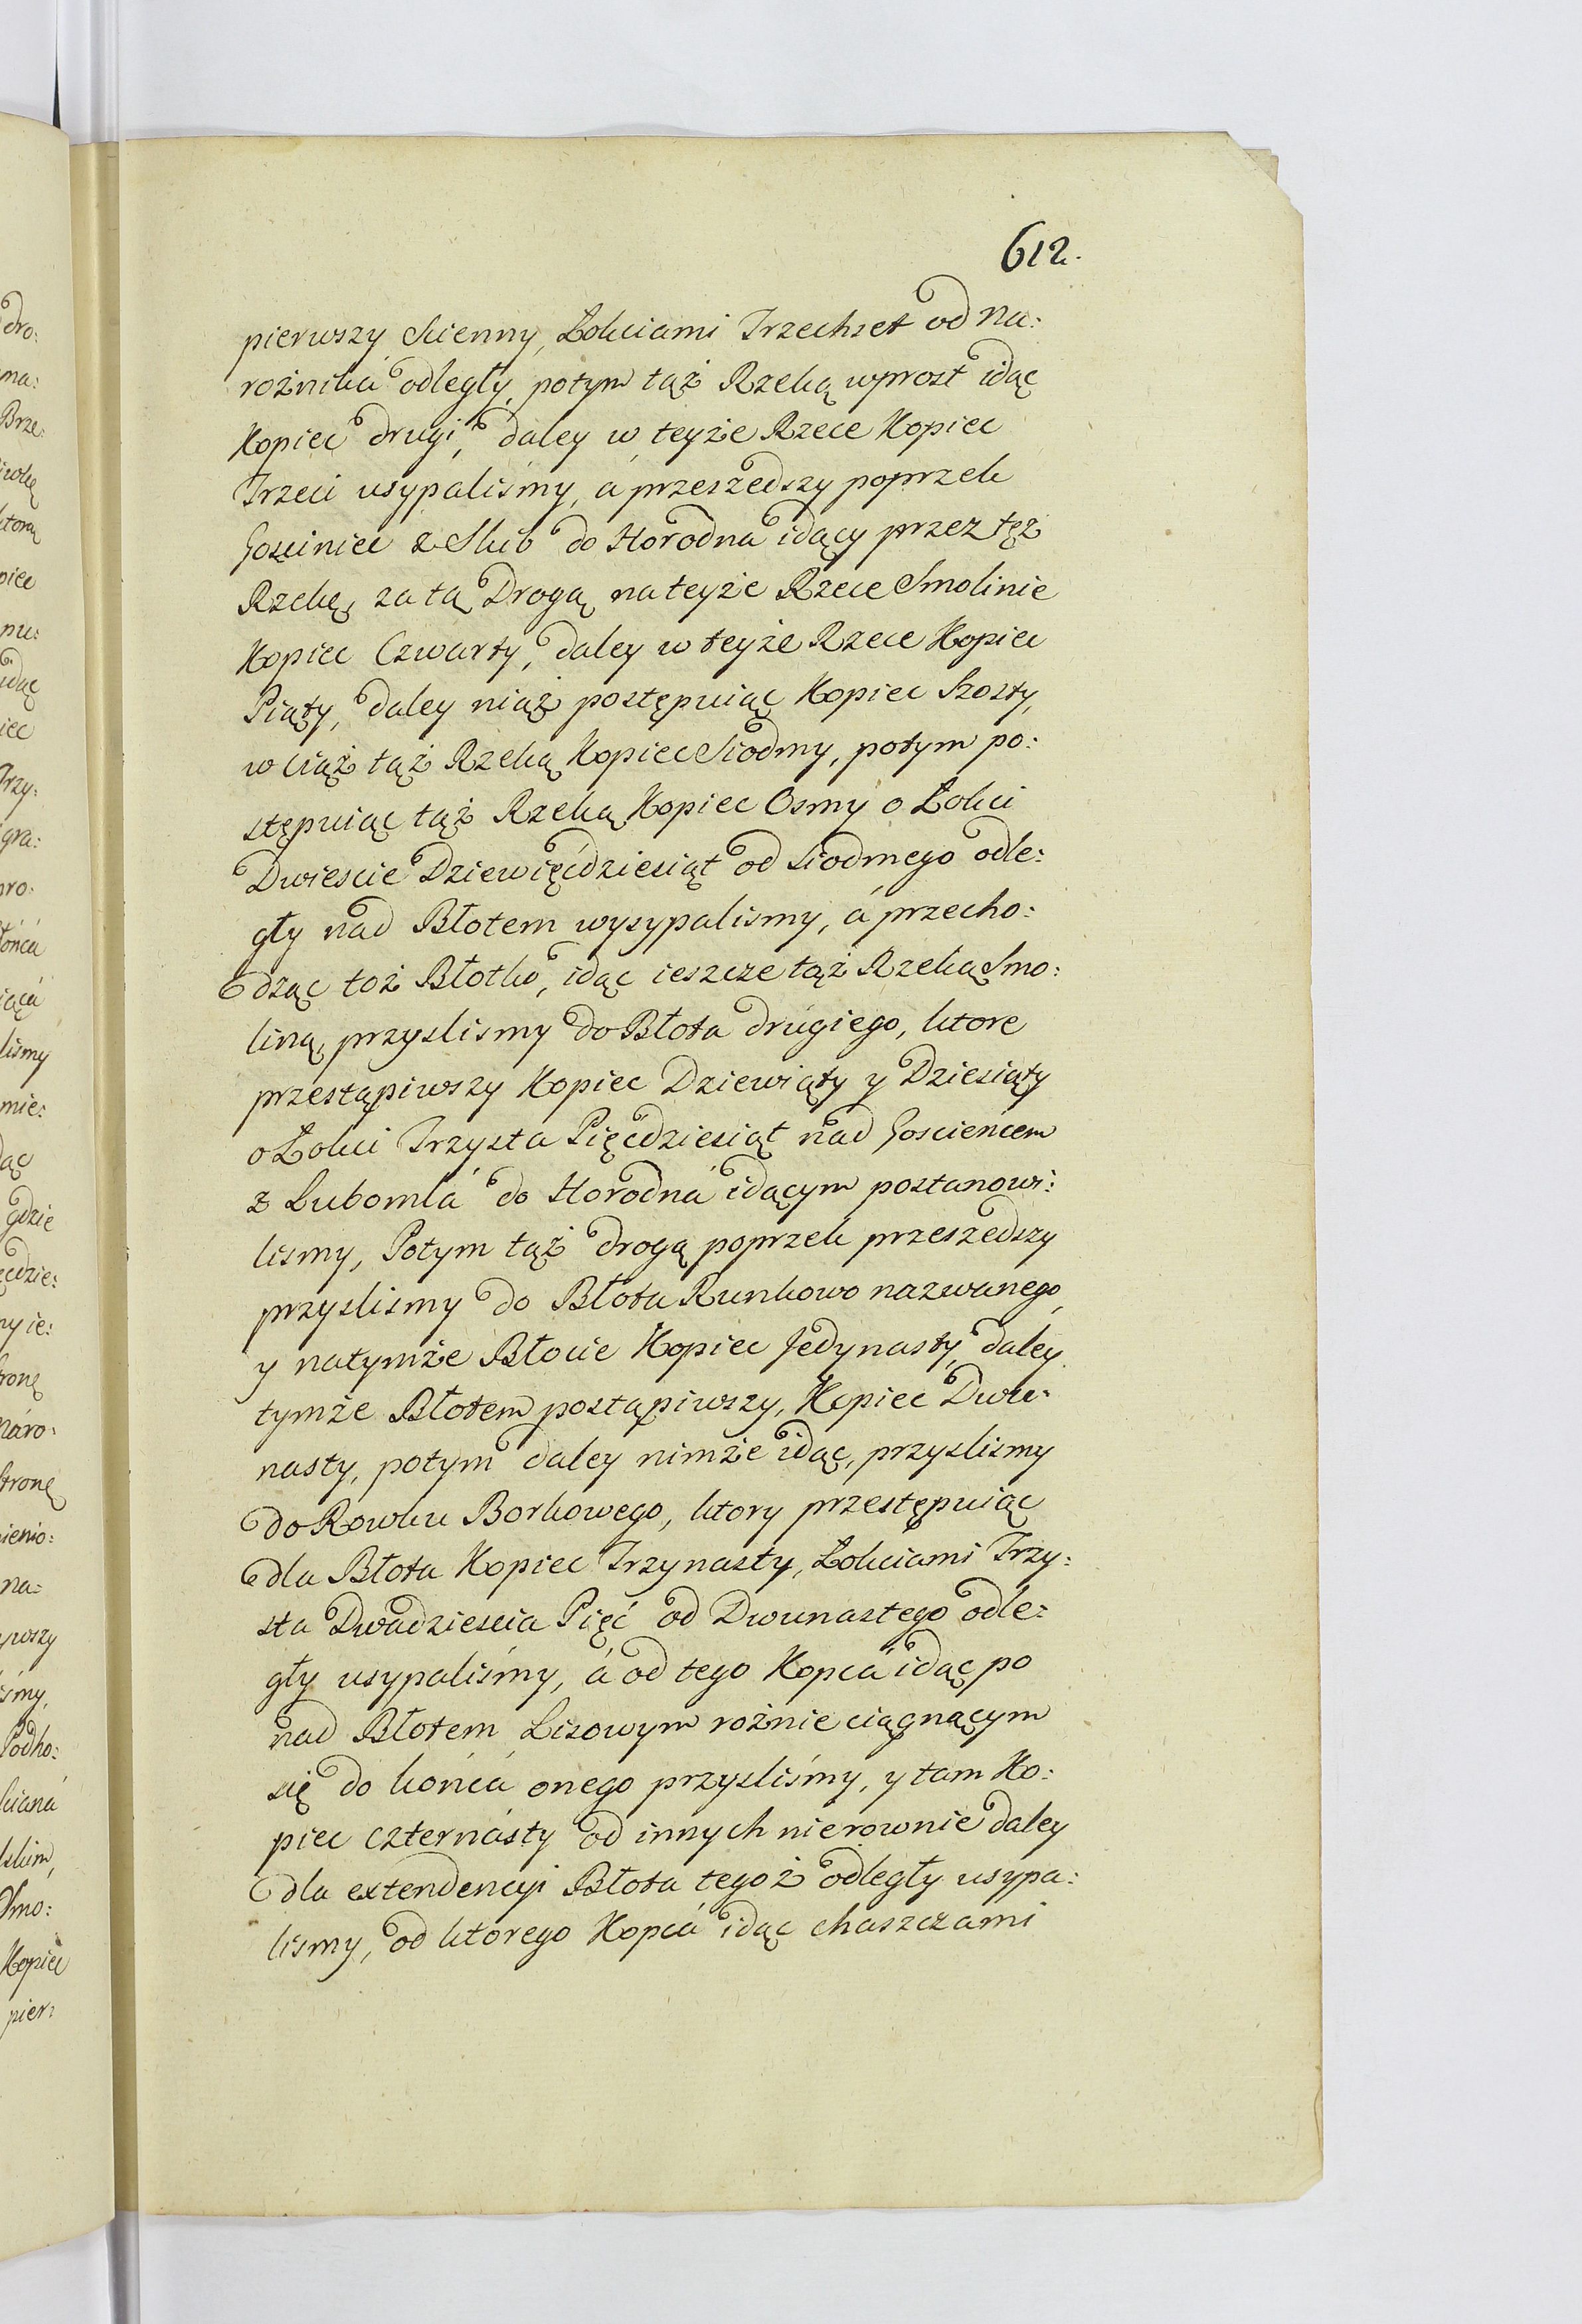 612.
pierwszy Scienny, Łokciami Trzechset od na:
rożnika odległy, potym tąż Rzeką wprost idąc
Kopiec drugi, daley w teyże Rzece Kopiec
Trzeci usypaliśmy, á przeszedszy poprzek
Gosciniec z Slub do Horodna idący przez tęż
Rzekę, za tą Drogą na teyże Rzece Smolinie
Kopiec Czwarty, daley w teyże Rzece Kopiec
Piąty, daley niąż postępuiąc Kopiec Szosty,
w ciąż tąż Rzeką Kopiec Siodmy, potym po:
stępuiąc tąż Rzeką Kopiec Osmy o Łokci
Dwiescie Dziewięćdziesiąt od siodmego odle:
gły nad Błotem wysypalismy, á przecho:
dząc toż Błotko, idąc ieszcze tąż Rzeką Smo:
liną, przyslismy do Błota drugiego, ktore
przestąpiwszy Kopiec Dziewiąty y Dziesiąty
o Łokci Trzysta Pięćdziesiąt nad Goscieńcem
z Lubomlá do Horodná idącym postanowi:
lismy, Potym tąż drogą poprzek przeszedszy
przyslismy do Błota Runkowo nazwanego,
y natymże Błocie Kopiec Jedynasty, daley
tymże Błotem postąpiwszy, Kopiec Dwu:
nasty, potym daley nimże idąc, przyslismy
do Rowku Borkowego, ktory przestępuiąc
dla Błota Kopiec Trzynasty, Łokciami Trzy:
sta Dwadziescia Pięć od Dwunastego odle:
gły usypaliśmy, á od tego Kopcá idąc po
nad Błotem Lisowym rożnie ciągnącym
się do końcá onego przysliśmy, y tam Ko:
piec czternásty od innych nierownie daley
dla extendencyi Błota tegoż odległy usypa:
lismy, od ktorego Kopcá idąc chaszczami